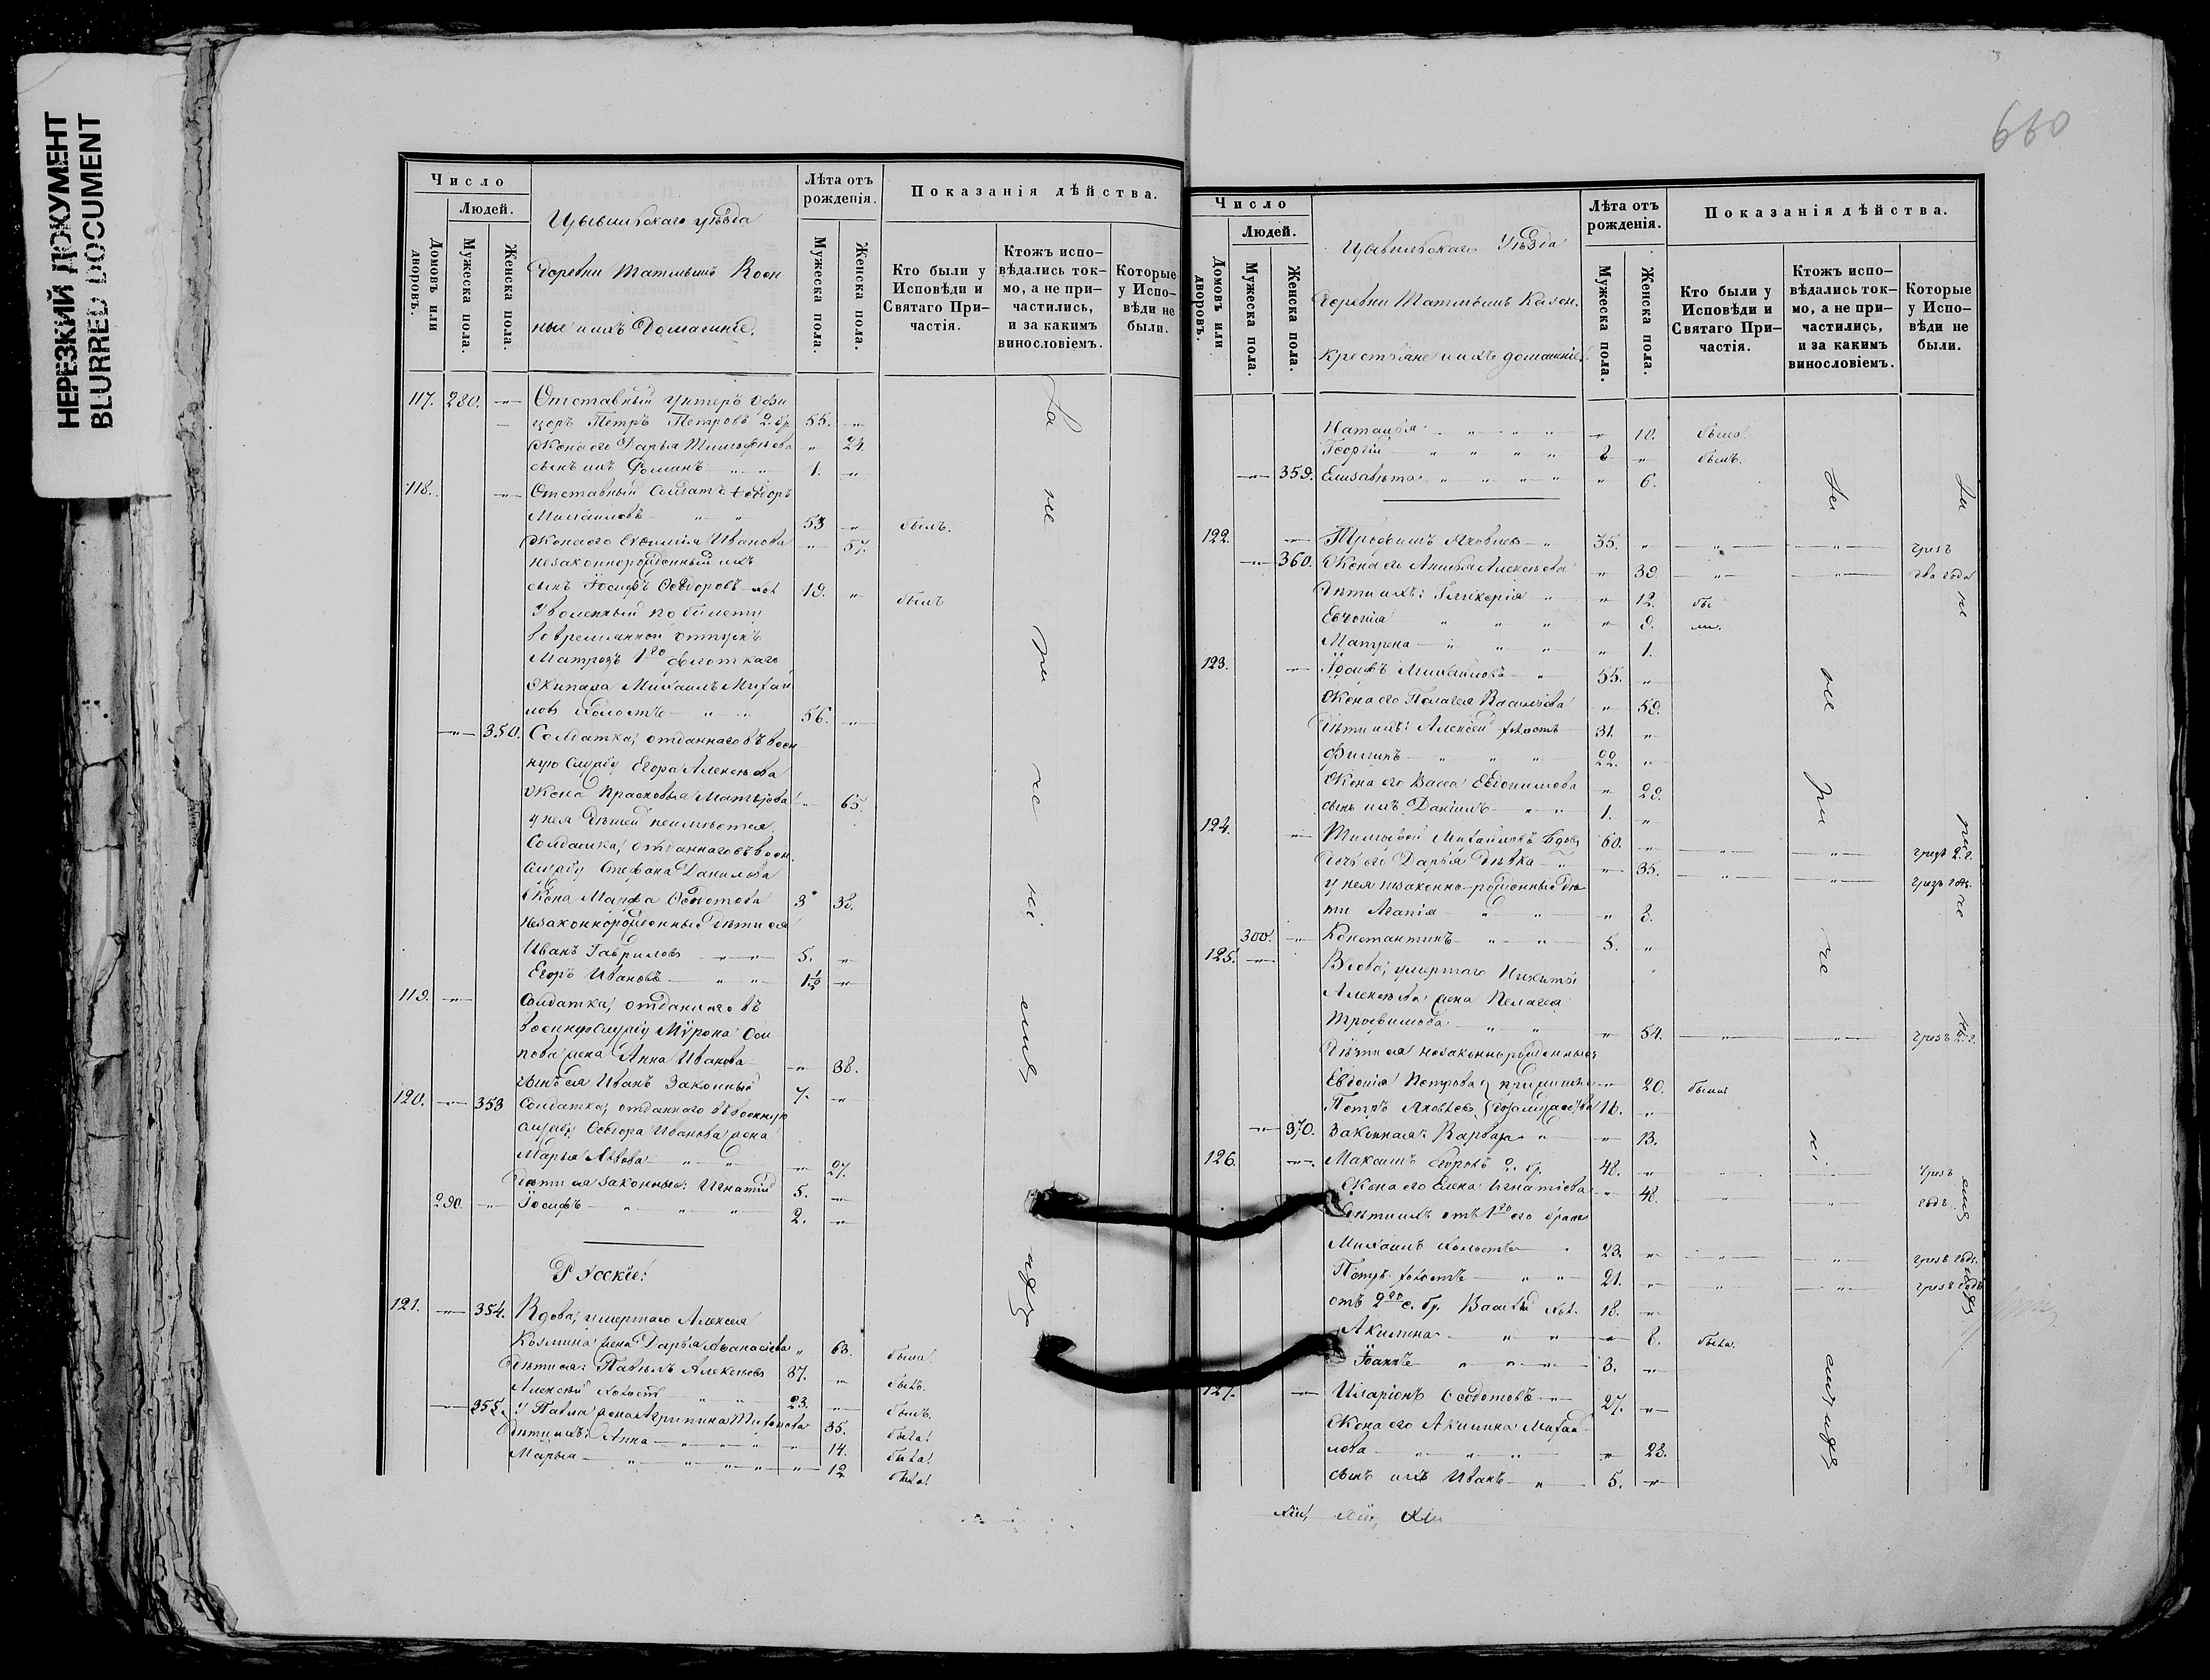 НЕРЕЗКИЙ ДОКУМЕНТ
BLURRED DOCUMENT
Число
Людей.
Домовъ или дворовъ.
Мужеска пола.
Женска пола.
Цывильскаго уѣзда
деревни
ные и ихъ домашніе.
Лѣта отъ рожденія.
Мужеска пола.
Женска пола.
Показанія дѣйства.
Кто были у Исповѣди и Святаго Причастія.
Ктожъ исповѣдались токмо, а не причастились, и за какимъ винословіемъ.
Которые у Исповѣди не были.
117. 280. Отставный унтеръ офи
церъ Петръ Петровъ 2. бр. 55.
Жена его Дарья Тимофѣева 24.
сынъ ихъ Романъ 1.
118. Отставный Солдатъ Ѳеодоръ
Михаиловъ 53 былъ.
Жена его Евфимія Иванова 57.
незаконнорожденный ихъ
сынъ Іосифъ Ѳеодоровъ хол 19. былъ
Уволенный по билету
во временной отпускъ
Матрозъ 1го флотскаго
Экипажа Михаилъ Михаи
ловъ холостъ 56.
350. Солдатка, отданнаго въ воен
ную службу Егора Алексѣева
жена Прасковья Матвѣева 65.
у нея дѣтей неимѣется
Солдатка, отданнаго въ воен.
службу Стефана Данилова
жена Марфа Ѳедотова 38.
незаконнорожденные дѣти ея
Иванъ Гавриловъ 5.
Егоръ Ивановъ 1½
119. Солдатка, отданнаго въ
военную службу Мѵрона Оси
пова жена Анна Иванова 38.
сынъ ея Иванъ законный 7.
120. 353 Солдатка, отданнаго въ военную
службу Ѳеодора Иванова жена
Марья Львова 27.
Дѣти ея законные: Игнатій 5.
290. Іосифъ 2.
Русскіе:
121. 354. Вдова, умершаго Алексѣя
Козмина жена Дарья Аѳанасіева 63. была.
Дѣти ея: Павелъ Алексѣевъ 37. былъ.
Алексѣй холост 23. былъ.
355. У Павла жена Агрипина Тихонова 35. была.
Дѣти ихъ: Анна 14. была.
Марья 12 была.
660
Число
Людей.
Домовъ или дворовъ.
Мужеска пола.
Женска пола.
Цывильскаго Уѣзда
деревни Казен.
крестьяне и ихъ домашніе.
Лѣта отъ рожденія.
Мужеска пола.
Женска пола.
Показанія дѣйства.
Кто были у Исповѣди и Святаго Причастія.
Ктожъ исповѣдались токмо, а не причастились, и за какимъ винословіемъ.
Которые у Исповѣди не были.
Наталія 10. была.
Георгій 8 былъ.
359. Елисавѣта 6.
122. Трофимъ Яковлев 35. чрезъ
360. Жена его Анисья Алексѣева 39. два года
Дѣти ихъ: Гликерія 12. бы
Евгенія 9. ли.
Матрена 1.
123. Іосифъ Михаиловъ 55.
Жена его Пелагея Василіева 59.
Дѣти ихъ: Алексѣй холостъ 31.
Филипъ 22.
Жена его Васса Евдокимова 29.
сынъ ихъ Даніилъ 1.
124. Тимофей Михаиловъ вдов 60. чрезъ 2. г.
Дочь его Дарья дѣвка 35. чрезъ годъ.
у нея незаконно-рожденные дѣ
ти Агапія 8.
300. Константинъ 5.
125. Вдова, умершаго Никиты
Алексѣева жена Пелагея
Трофимова 54. чрезъ 2. г.
Дѣти ея незаконнорожденные
Евдокія Петрова 20. была
Петръ Яковлевъ 16.
370. Законная: Варвара 13.
126. Максимъ Егоровъ 2. бр. 48. чрезъ
Жена его Елена Игнатіева 48. годъ.
Дѣти ихъ отъ 1го его брака
Михаилъ холостъ 23. чрезъ годъ.
Петръ холостъ 21. чрезъ годъ
отъ 2го с. бр. Василій хол. 18.
Акилина 8. была.
Іоаннъ 3.
127. Иларіонъ Ѳедотовъ 27.
Жена его Акилина Михаи
лова 28.
сынъ ихъ Иванъ 5.